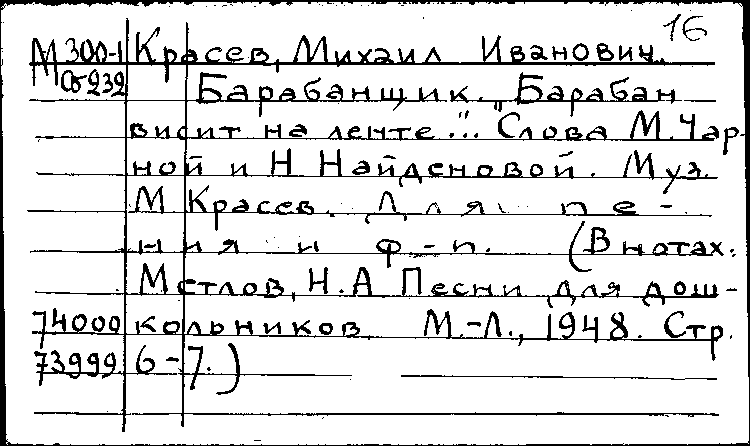 16
М 300-1 Красев, Михаил Иванович.
Об232 Барабанщик. „Барабан
висит на ленте..." Слова М. Чар-
ной и Н Найденовой. Муз.
М Красев. Для пе-
ния и ф-п. (В нотах:
Метлов, Н.А Песни для дош-
74000 кольников М.-Л., 1948. Стр.
73999 6-7.)